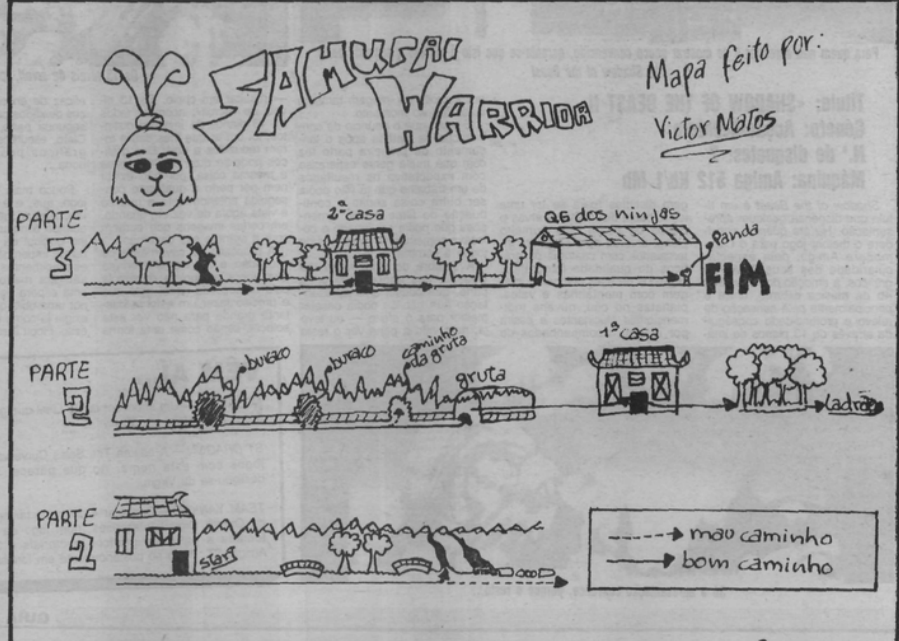 SAMURAI
WARRIOR
Mapa feito por:
Victor Matos
PARTE
3
2ª casa
QG dos ninjas
Panda
FIM
PARTE
2
buraco
buraco
caminho
da gruta
gruta
1ª casa
Ladrão
PARTE
1
start
mau caminho
bom caminho